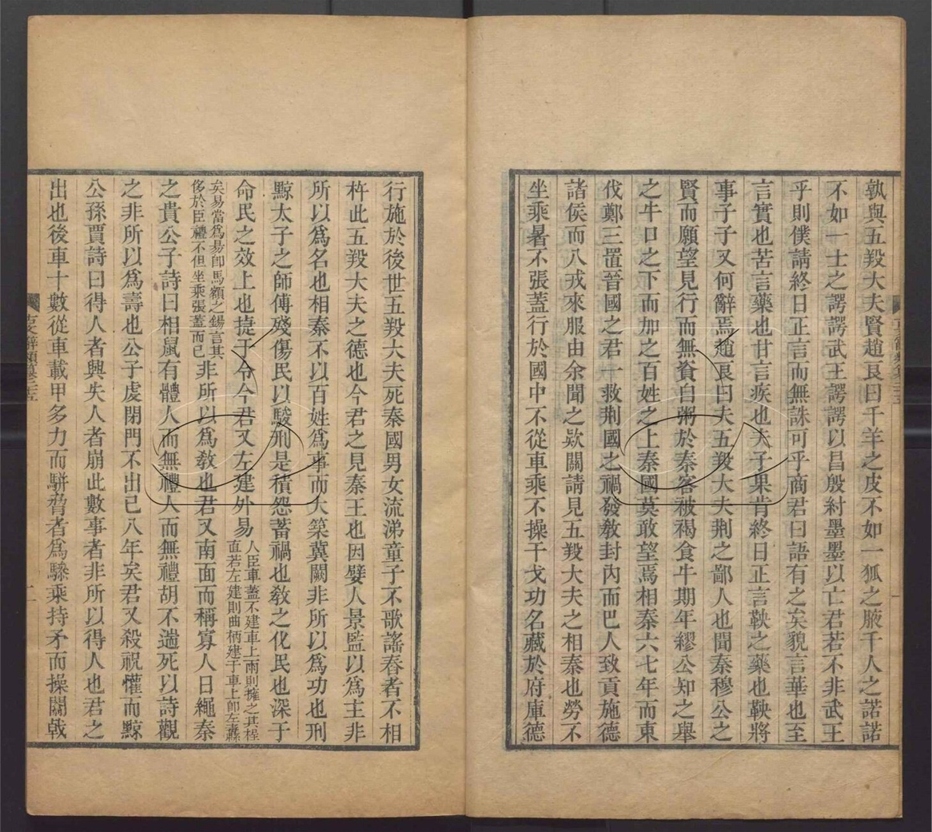 孰與五羖大夫賢趙良曰千羊之皮不如一狐之腋千人之諾諾
不如一士之諤諤武王諤諤以昌殷紂墨墨以亡君若不非武王
乎則僕請終日正言而無誅可乎商君曰語有之矣貌言華也至
言實也苦言藥也甘言疾也夫子果肯終日正言鞅之藥也鞅將
事子子又何辭焉趙良曰夫五羖大夫荆之鄙人也聞秦穆公之
賢而願望見行而無資自粥於秦客被褐食牛期年繆公知之舉
之牛口之下而加之百姓之上秦國莫敢望焉相秦六七年而東
伐鄭三置晉國之君一救荆國之禍發敎封內而巴人致貢施德
諸侯而八戎來服由余聞之欵關請見五羖大夫之相秦也勞不
坐乘暑不張蓋行於國中不從車乘不操干戈功名藏於府庫德
行施於後世五羖大夫死秦國男女流涕童子不歌謠舂者不相
杵此五羖大夫之德也今君之見秦王也因嬖人景監以爲主非
所以爲名也相秦不以百姓爲事而大築冀闕非所以爲功也刑
黥太子之師傅殘傷民以駿刑是積怨蓄禍也敎之化民也深于
命民之效上也捷于令今君又左建外易人臣車蓋不建車上雨則擁之其杠
直若左建則曲柄建于車上卽左纛
矣易當爲昜卽馬額之鍚言其
侈於臣禮不但坐乘張蓋而已非所以爲敎也君又南面而稱寡人日繩秦
之貴公子詩曰相鼠有體人而無禮人而無禮胡不遄死以詩觀
之非所以爲壽也公子虔閉門不出已八年矣君又殺祝懽而黥
公孫賈詩曰得人者興失人者崩此數事者非所以得人也君之
出也後車十數從車載甲多力而駢脅者爲驂乘持矛而操闟戟